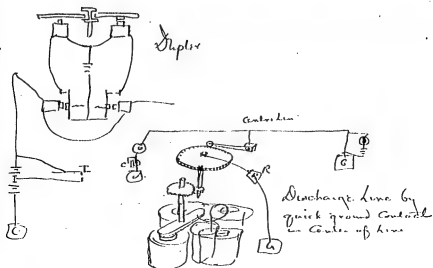 Duplex
Central Line
C
G
R
C
G
Discharge Line by
quick ground Contact
in Center of Line